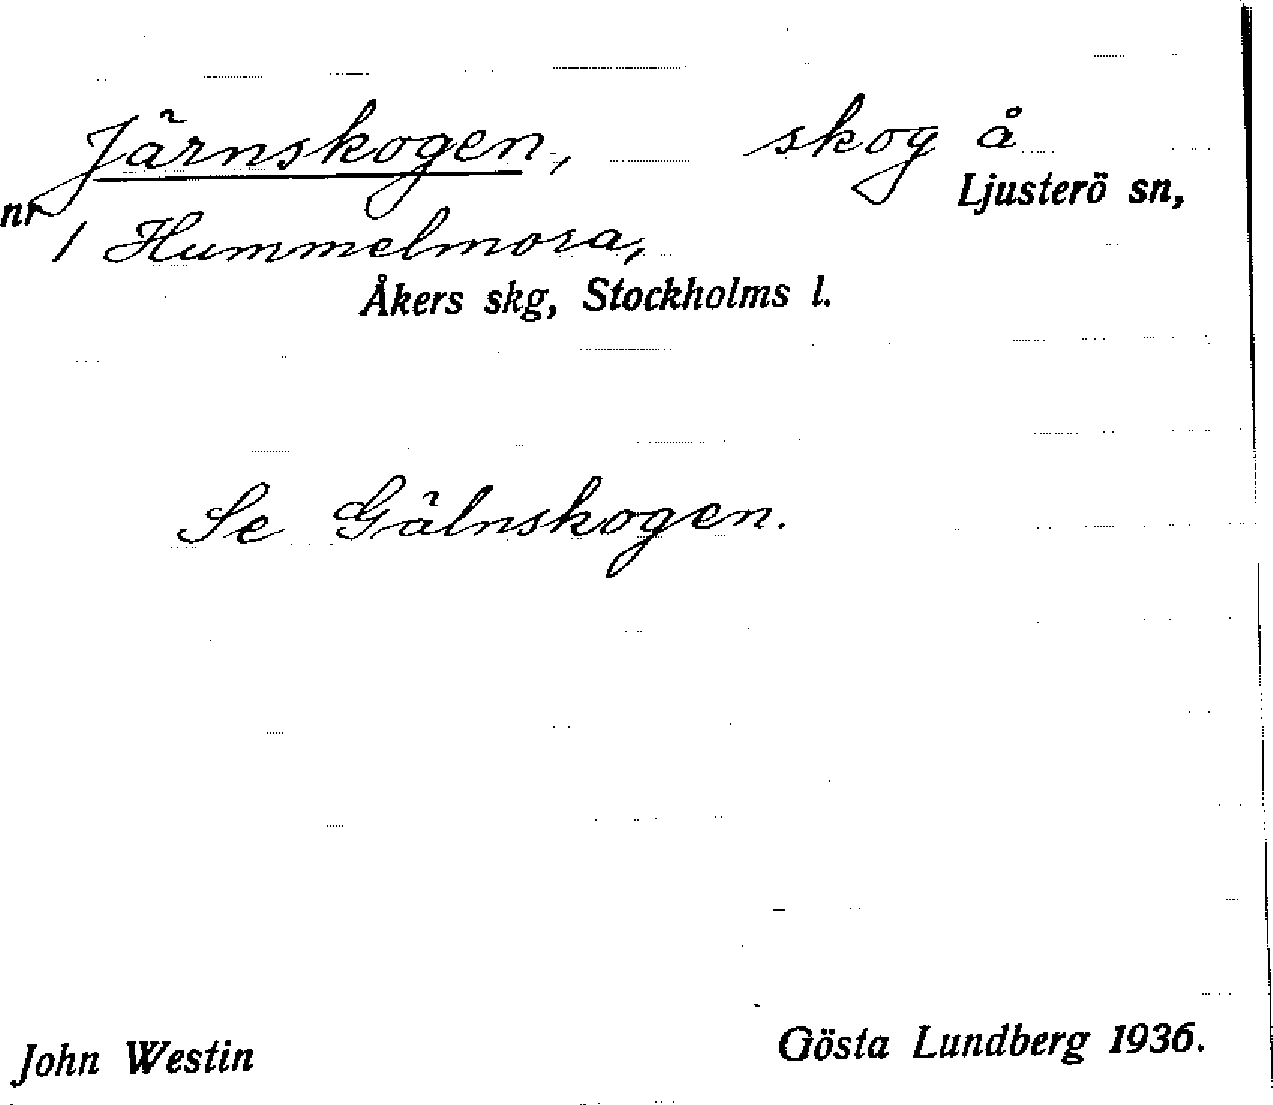 Järnskogen, skog å
Ljusterö sn,
nr
1 Hummelmora,
Åkers skg, Stockholms l.
Se Gälnskogen.
John Westin
Gösta Lundberg 1936.